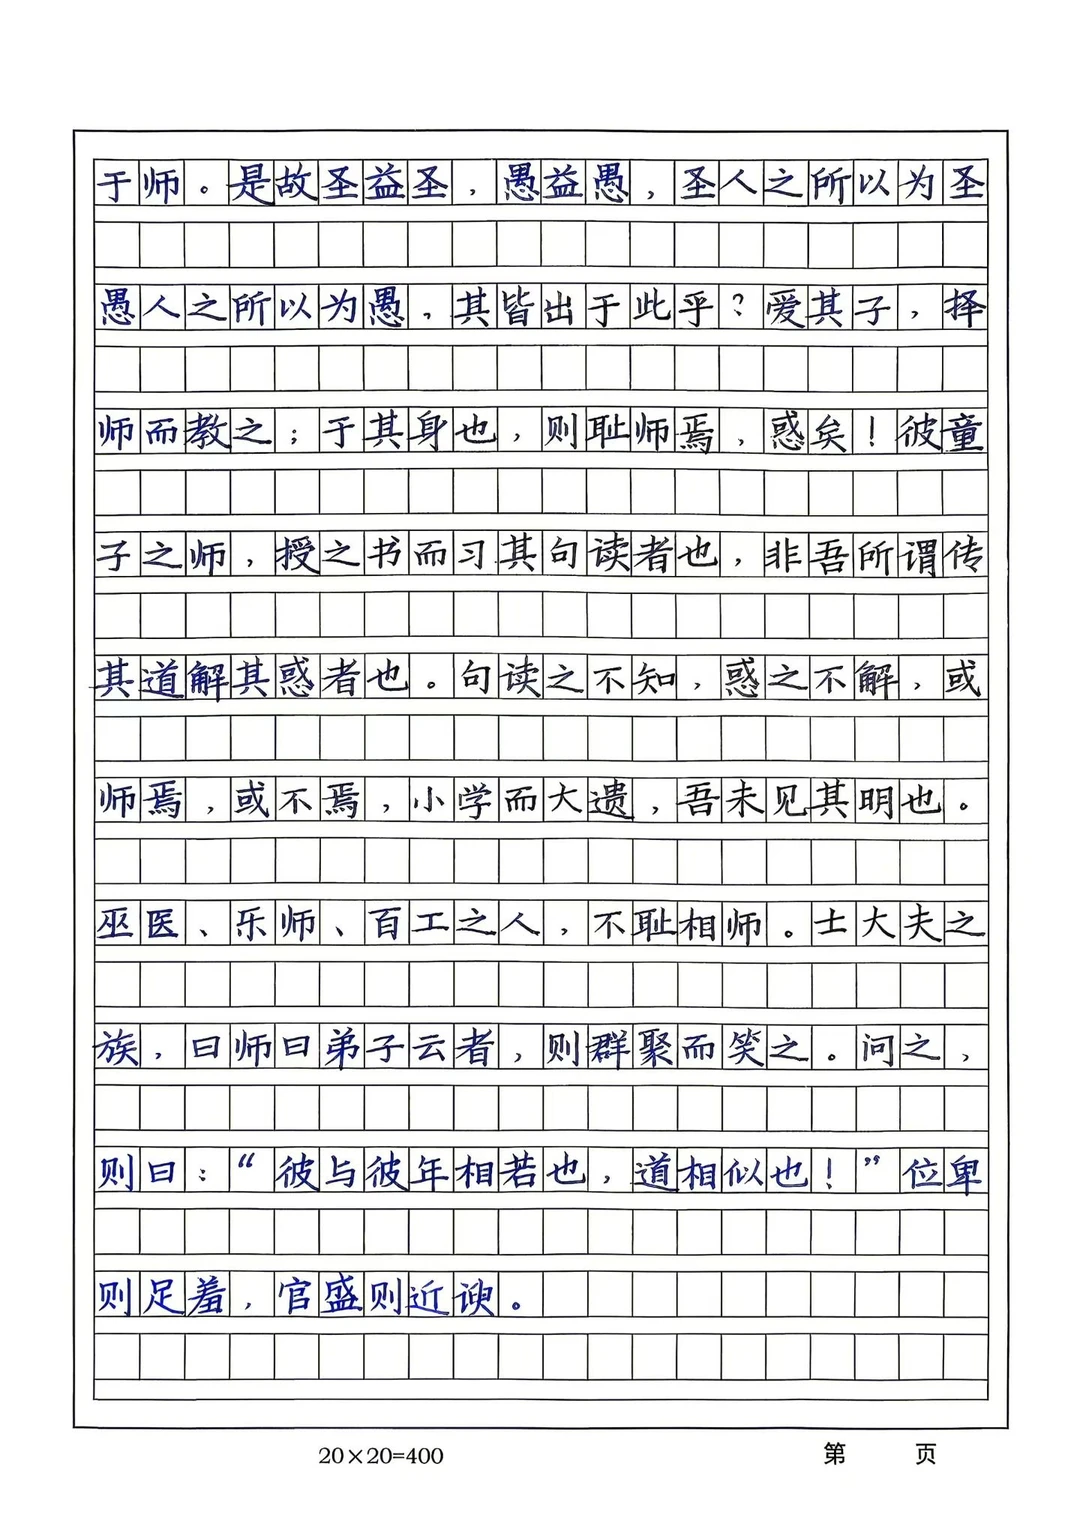 于师。是故圣益圣，愚益愚，圣人之所以为圣
愚人之所以为愚，其皆出于此乎？爱其子，择
师而教之；于其身也，则耻师焉，惑矣！彼童
子之师，授之书而习其句读者也，非吾所谓传
其道解其惑者也。句读之不知，惑之不解，或
师焉，或不焉，小学而大遗，吾未见其明也。
巫医、乐师、百工之人，不耻相师。士大夫之
族，曰师曰弟子云者，则群聚而笑之。问之，
则曰：“彼与彼年相若也，道相似也！”位卑
则足羞，官盛则近谀。
20×20=400 第 页